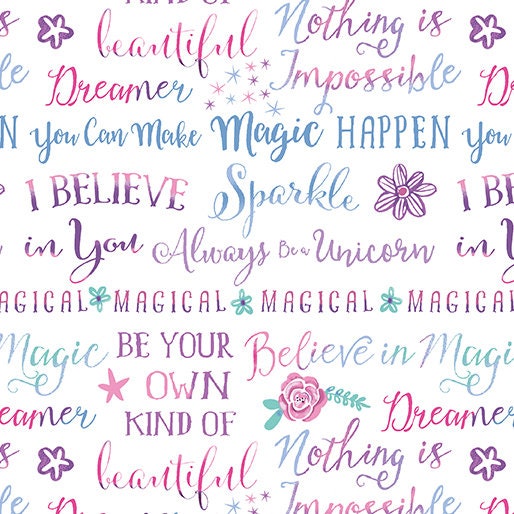 KIND OF
beautiful
Nothing is
Impossible
Dreamer
You Can Make Magic HAPPEN You
I BELIEVE
in You
Sparkle
I B
in Y
Always Be a Unicorn
MAGICAL MAGICAL MAGICAL MAGICAL
Magic
BE YOUR
OWN
KIND OF
beautiful
Believe in Magi
Dreamer
Nothing is
Impossible
Dreamer